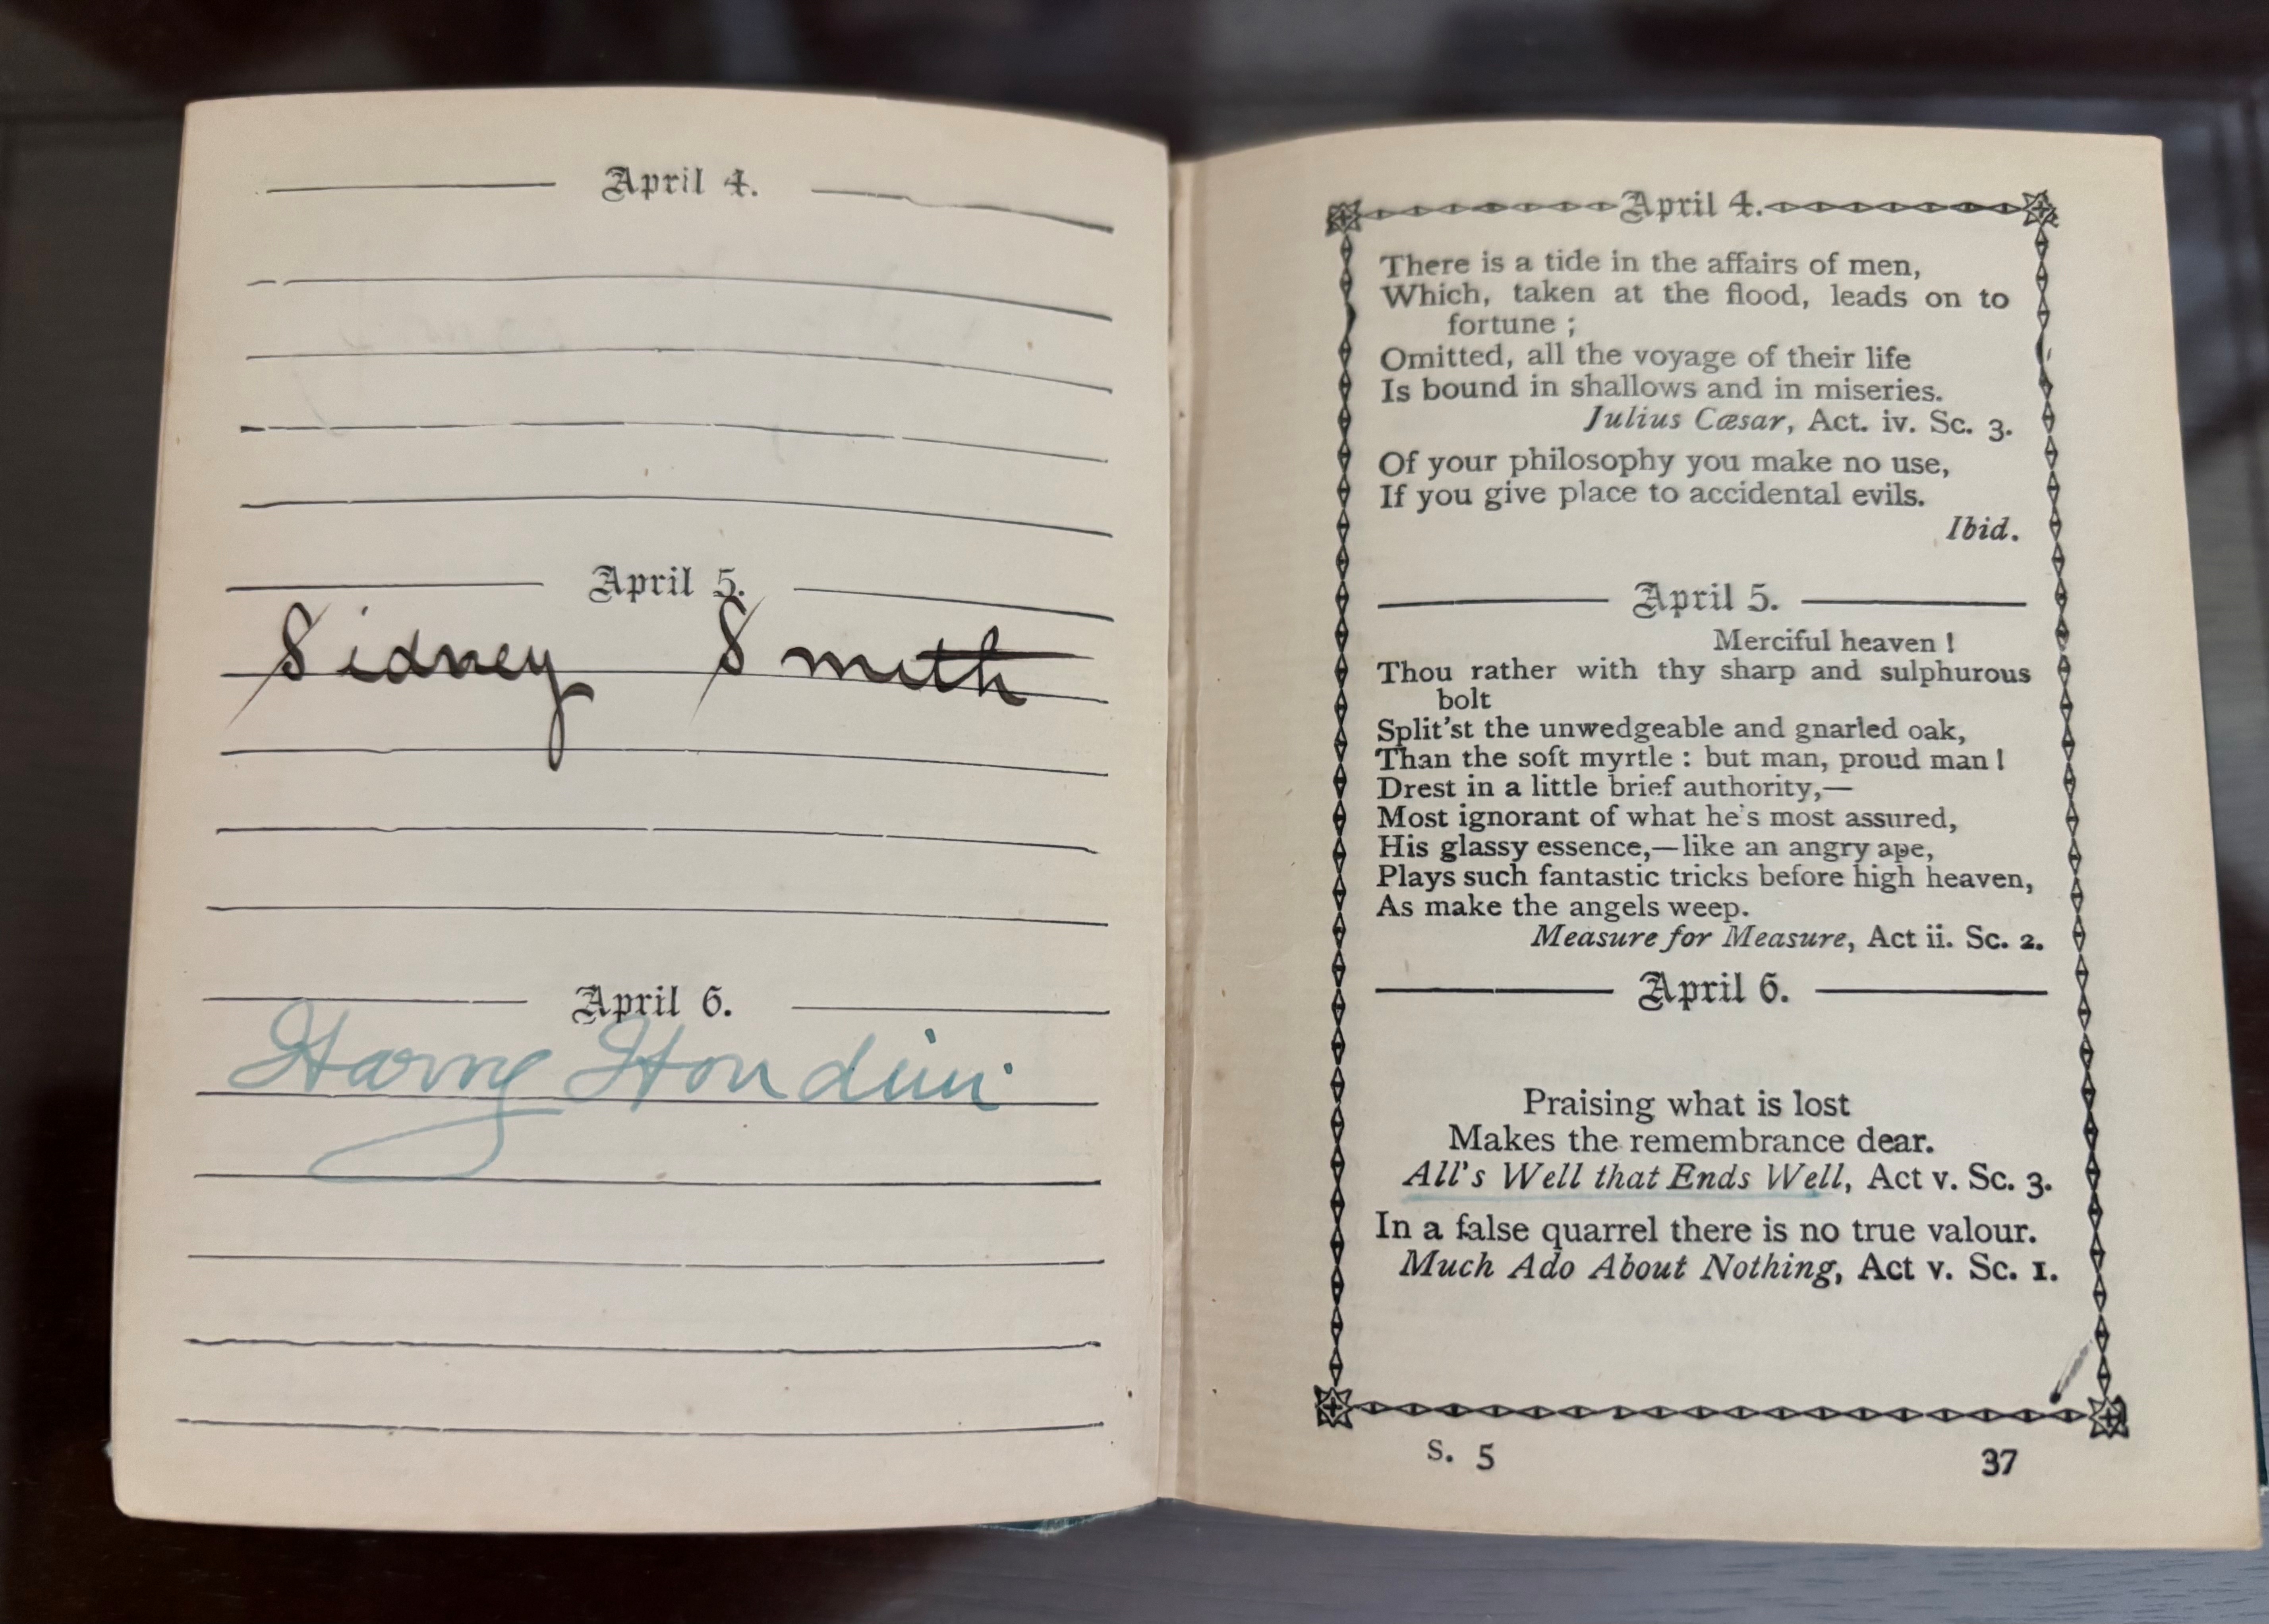 April 4.
April 5.
Sidney Smith
April 6.
Harry Houdini
April 4.
There is a tide in the affairs of men,
Which, taken at the flood, leads on to
fortune ;
Omitted, all the voyage of their life
Is bound in shallows and in miseries.
Julius Cæsar, Act. iv. Sc. 3.
Of your philosophy you make no use,
If you give place to accidental evils.
Ibid.
April 5.
Merciful heaven !
Thou rather with thy sharp and sulphurous
bolt
Split'st the unwedgeable and gnarled oak,
Than the soft myrtle : but man, proud man !
Drest in a little brief authority,—
Most ignorant of what he's most assured,
His glassy essence,—like an angry ape,
Plays such fantastic tricks before high heaven,
As make the angels weep.
Measure for Measure, Act ii. Sc. 2.
April 6.
Praising what is lost
Makes the remembrance dear.
All's Well that Ends Well, Act v. Sc. 3.
In a false quarrel there is no true valour.
Much Ado About Nothing, Act v. Sc. 1.
S. 5 37